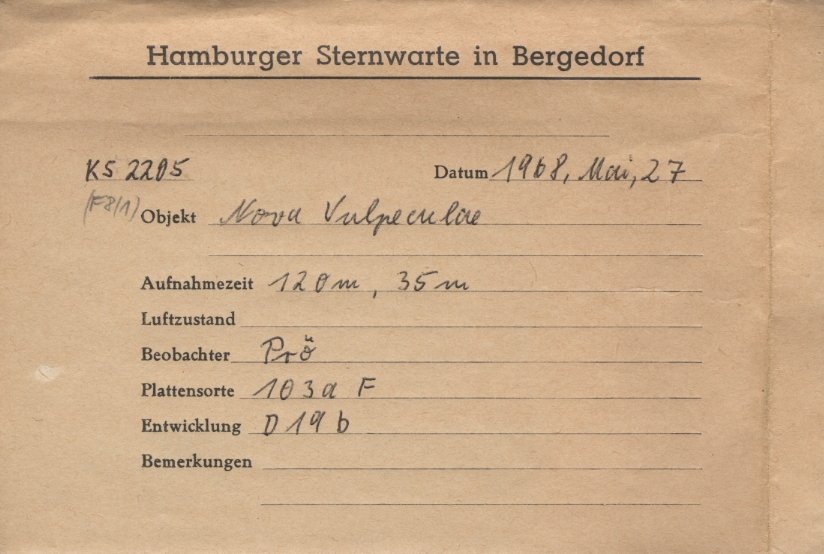 Hamburger Sternwarte in Bergedorf
KS 2205 Datum 1968, Mai, 27
(F8/1) Objekt Nova Vulpeculae
Aufnahmezeit 120m, 35m
Luftzustand
Beobachter Prö
Plattensorte 103a F
Entwicklung D19b
Bemerkungen